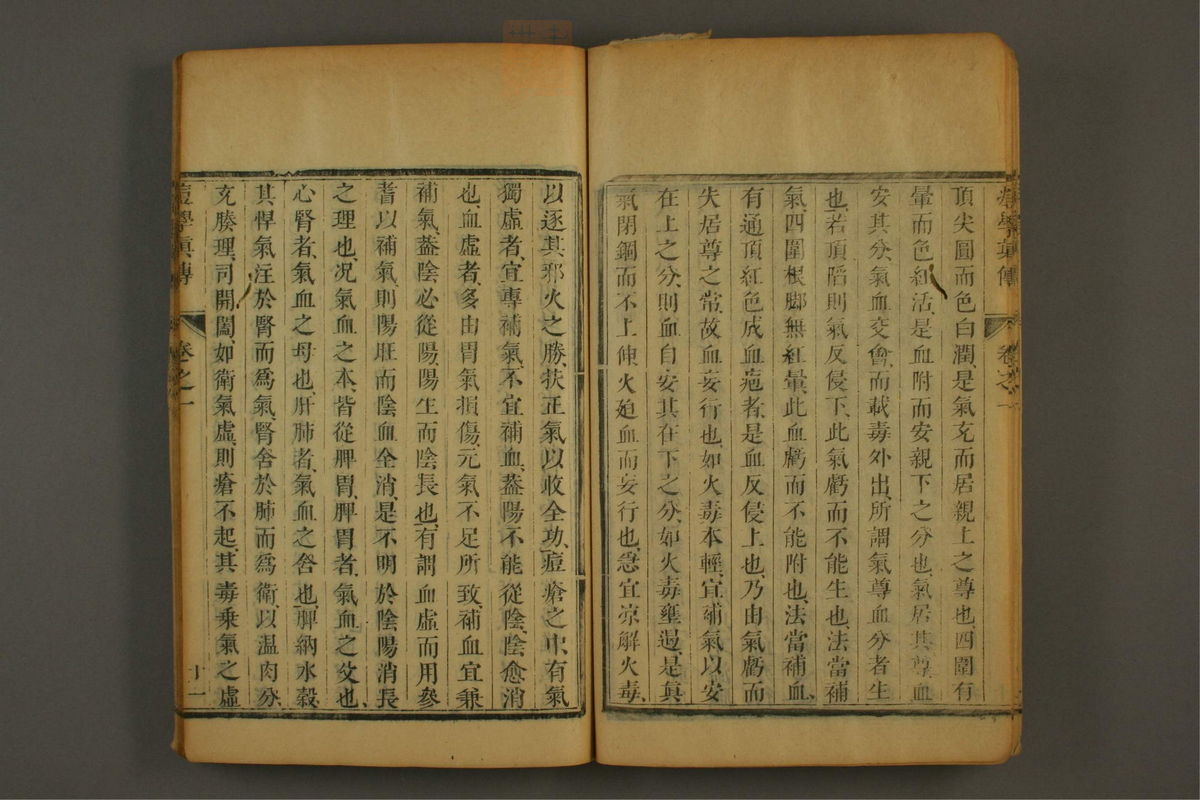 頂尖圓而色白潤是氣充而居親上之尊也四圍有
暈而色紅活是血附而安親下之分也氣居其尊血
安其分氣血交會而載毒外出所謂氣尊血分者生
也若頂陷則氣反侵下此氣虧而不能生也法當補
氣四圍根脚無紅暈此血虧而不能附也法當補血
有通頂紅色成血疱者是血反侵上也乃由氣虧而
失居尊之常故血妄行也如火毒本輕宜補氣以安
在上之分則血自安其在下之分如火毒壅遏是眞
氣閉錮而不上伸火廹血而妄行也急宜凉解火毒
以逐其邪火之勝扶正氣以收全功痘瘡之中有氣
獨虛者宜專補氣不宜補血葢陽不能從陰陰愈消
也血虛者多由胃氣損傷元氣不足所致補血宜兼
補氣葢陰必從陽陽生而陰長也有謂血虛而用參
耆以補氣則陽旺而陰血全消是不明於陰陽消長
之理也况氣血之本皆從脾胃脾胃者氣血之父也
心腎者氣血之母也肝肺者氣血之舍也脾納水穀
其悍氣注於腎而爲氣腎舍於肺而爲衛以温肉分
充腠理司開闔如衛氣虛則瘡不起其毒乘氣之虛
痘學眞傳 卷之一 十一